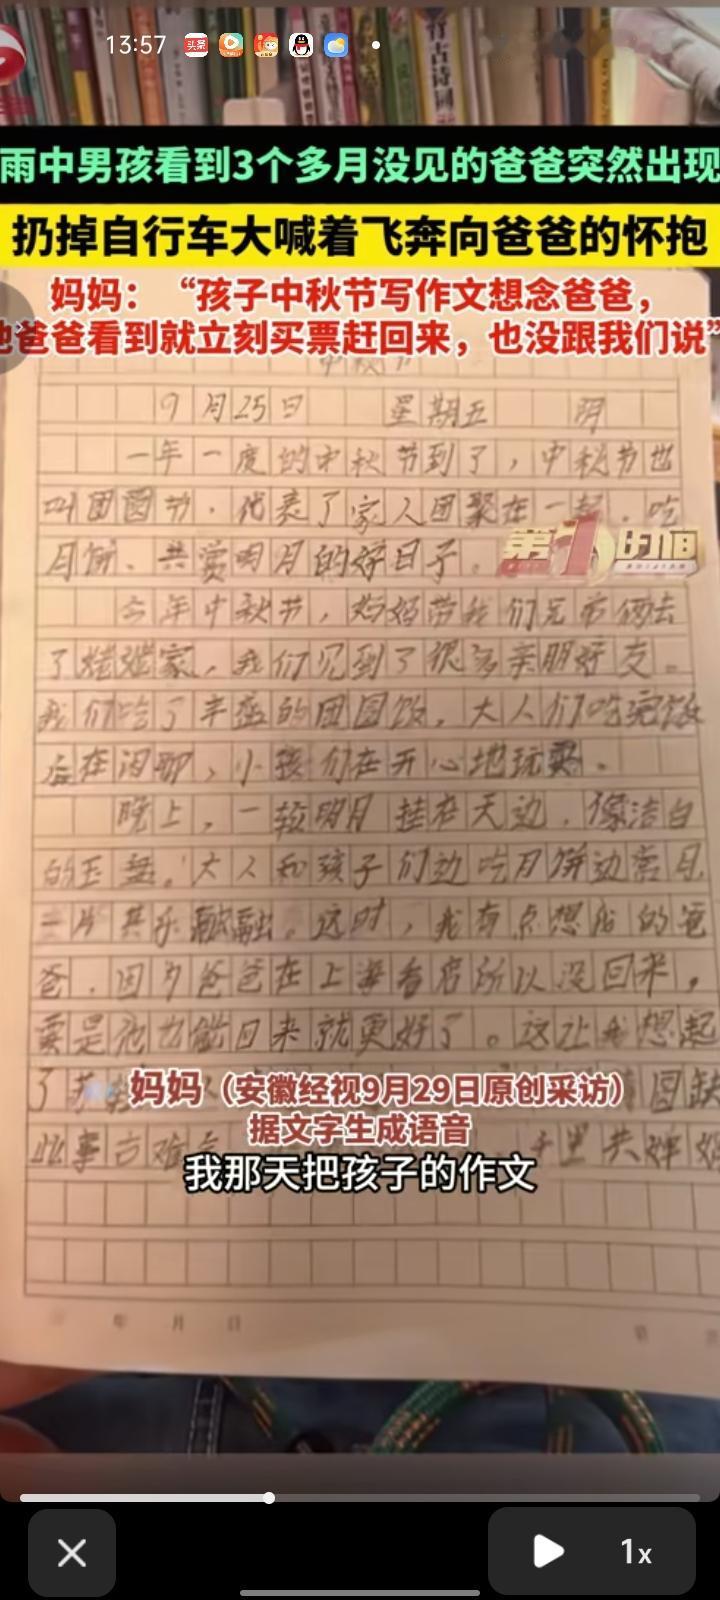 13:57
头条
竹古诗词
雨中男孩看到3个多月没见的爸爸突然出现
扔掉自行车大喊着飞奔向爸爸的怀抱
妈妈：“孩子中秋节写作文想念爸爸，
他爸爸看到就立刻买票赶回来，也没跟我们说”
中秋节
9月25日 星期五 阴
一年一度的中秋节到了，中秋节也
叫团圆节，代表了家人团聚在一起，吃
月饼、共赏明月的好日子。
第1时间
今年中秋节，妈妈带我们兄弟俩去
了姥姥家，我们见到了很多亲朋好友。
我们吃了丰盛的团圆饭，大人们吃完饭
后在闲聊，小孩们在开心地玩耍。
晚上，一轮明月挂在天边，像洁白
的玉盘。大人和孩子们边吃月饼边赏月
一片其乐融融。这时，我有点想我的爸
爸，因为爸爸在上海看店所以没回来，
要是他也能回来就更好了。这让我想起
了 圆缺
妈妈（安徽经视9月29日原创采访）
据文字生成语音
此事古难 千里共婵娟
我那天把孩子的作文
年 月 日 第
1x